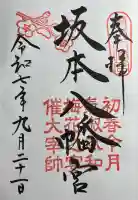 奉拝
坂本八幡宮
初春令月
気淑風和
梅花の宴
催大宰帥
令和七年九月二十一日